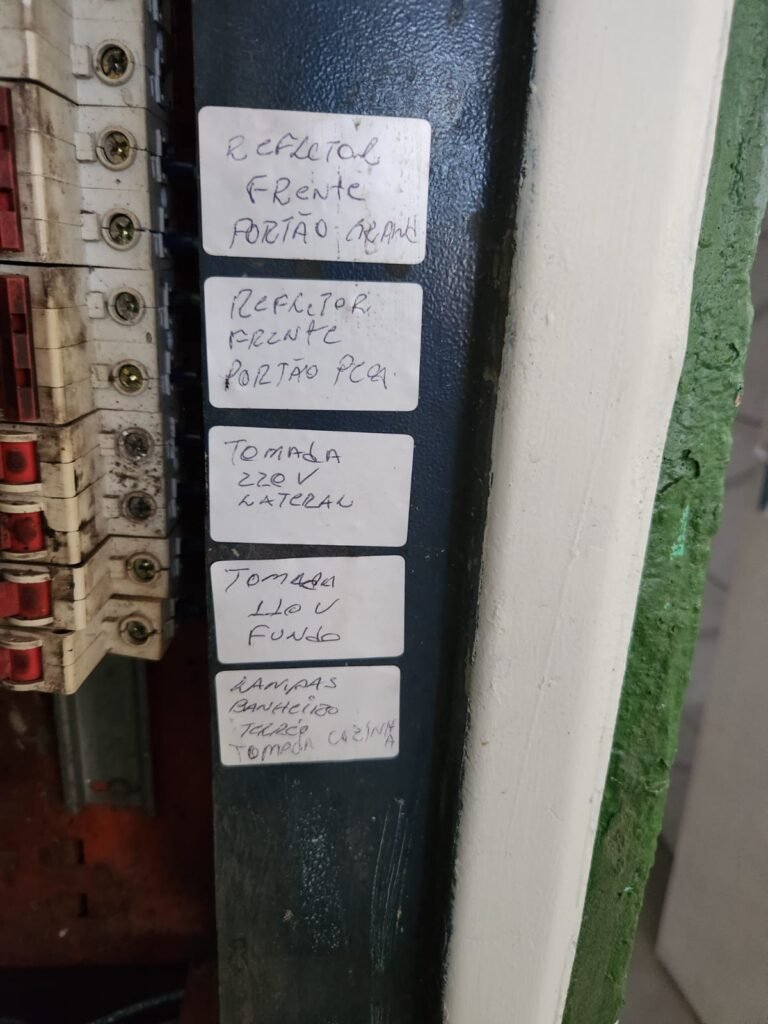 REFLETOR
FRENTE
PORTÃO GRAND
REFLETOR
FRENTE
PORTÃO PEQ.
TOMADA
220V
LATERAL
TOMADA
110V
FUNDO
LAMPAS
BANHEIRO
TERREO
TOMADA COZINHA